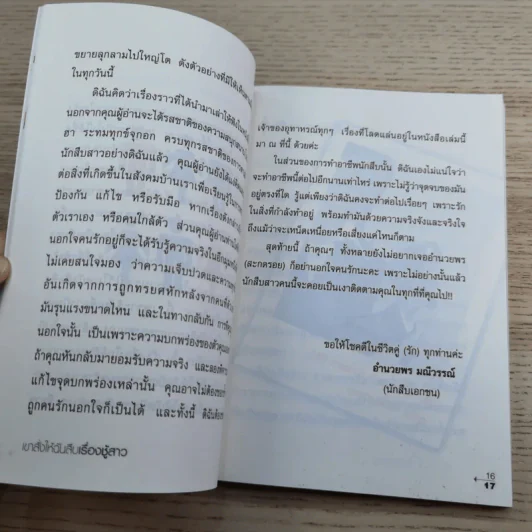 ขยายลุกลามไปใหญ่โต ดังตัวอย่างที่มีให้เห็น
ในทุกวันนี้
ดิฉันคิดว่าเรื่องราวที่ได้นำมาเล่าให้ฟังใน
นอกจากคุณผู้อ่านจะได้รสชาติของความสนุก
ฮา ระทมทุกข์จุกอก ครบทุกรสชาติของ
นักสืบสาวอย่างดิฉันแล้ว คุณผู้อ่านยังได้
ต่อสิ่งที่เกิดขึ้นในสังคมบ้านเราเพื่อเรียนรู้
ป้องกัน แก้ไข หรือรับมือ หากเรื่องดังกล่าว
ตัวเราเอง หรือคนใกล้ตัว ส่วนคุณผู้อ่าน
นอกใจคนรักอยู่ก็จะได้รับรู้ความจริงในอีก
ไม่เคยสนใจมอง ว่าความเจ็บปวดและความ
อันเกิดจากการถูกทรยศหักหลังจากคนที่
มันรุนแรงขนาดไหน และในทางกลับกัน การที่
นอกใจนั้น เป็นเพราะความบกพร่องของตัวคุณ
ถ้าคุณหันกลับมายอมรับความจริง และลอง
แก้ไขจุดบกพร่องเหล่านั้น คุณอาจไม่ต้อง
ถูกคนรักนอกใจก็เป็นได้ และทั้งนี้ ดิฉันต้อง
เขาสั่งให้ฉันสืบเรื่องชู้สาว
เจ้าของอุทาหรณ์ทุกๆ เรื่องที่โลดแล่นอยู่ในหนังสือเล่มนี้
มา ณ ที่นี้ ด้วยค่ะ
ในส่วนของการทำอาชีพนักสืบนั้น ดิฉันเองไม่แน่ใจว่า
จะทำอาชีพนี้ต่อไปอีกนานเท่าไหร่ เพราะไม่รู้ว่าจุดจบของมัน
อยู่ตรงที่ใด รู้แต่เพียงว่าดิฉันคงจะทำต่อไปเรื่อยๆ เพราะรัก
ในสิ่งที่กำลังทำอยู่ พร้อมทำมันด้วยความจริงจังและจริงใจ
ถึงแม้ว่าจะเหน็ดเหนื่อยหรือเสี่ยงแค่ไหนก็ตาม
สุดท้ายนี้ ถ้าคุณๆ ทั้งหลายยังไม่อยากเจออำนวยพร
(สะกดรอย) ก็อย่านอกใจคนรักนะคะ เพราะไม่อย่างนั้นแล้ว
นักสืบสาวคนนี้จะคอยเป็นเงาติดตามคุณในทุกที่ที่คุณไป!!
ขอให้โชคดีในชีวิตคู่ (รัก) ทุกท่านค่ะ
อำนวยพร มณีวรรณ์
(นักสืบเอกชน)
16
17